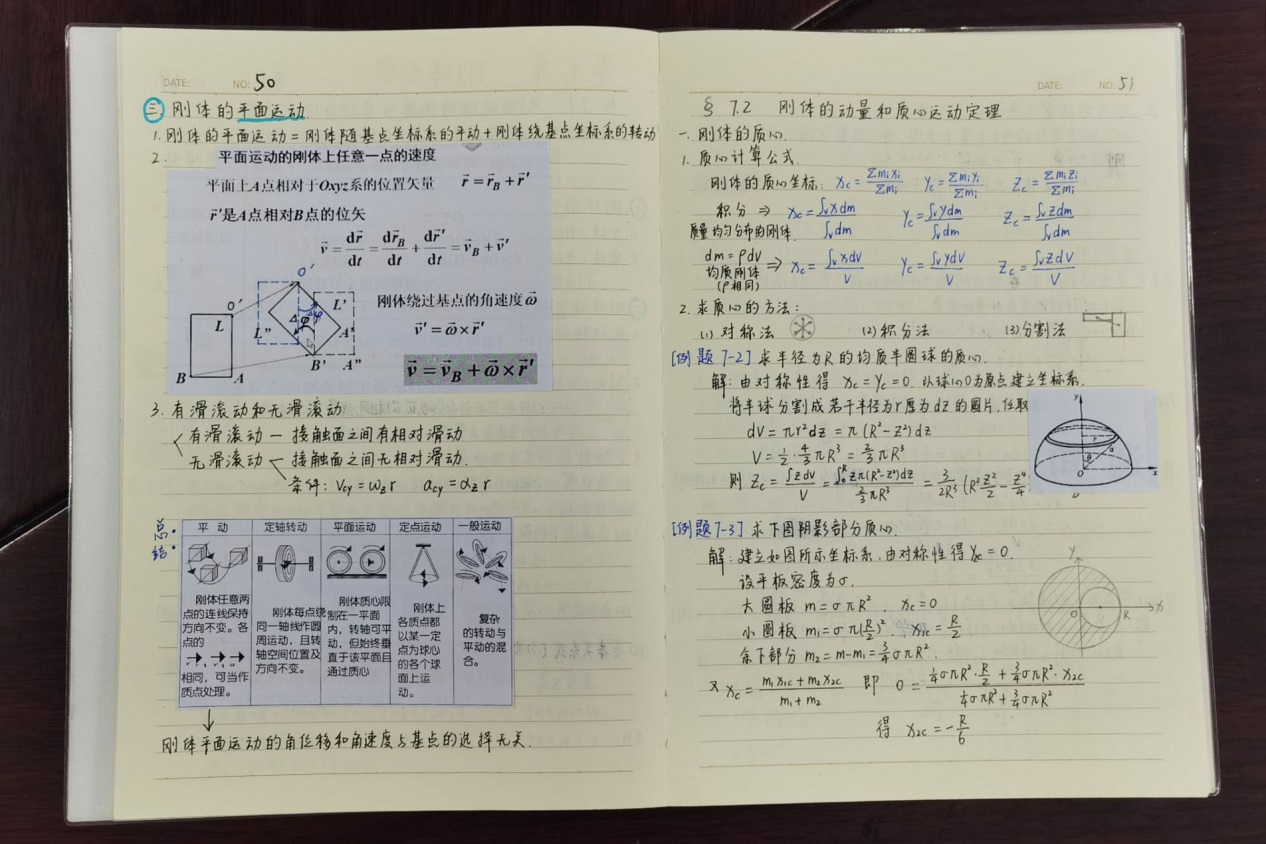 DATE: NO: 50
三 刚体的平面运动.
1. 刚体的平面运动 = 刚体随基点坐标系的平动 + 刚体绕基点坐标系的转动
2.
平面运动的刚体上任意一点的速度
平面上A点相对于Oxyz系的位置矢量 r⃗ = r⃗_B + r⃗′
r⃗′是A点相对B点的位矢
v⃗ = dr⃗/dt = dr⃗_B/dt + dr⃗′/dt = v⃗_B + v⃗′
O′
O′ L′
L L″ A′
B A B′ A″
刚体绕过基点的角速度ω⃗
v⃗′ = ω⃗ × r⃗′
v⃗ = v⃗_B + ω⃗ × r⃗′
3. 有滑滚动和无滑滚动
有滑滚动 — 接触面之间有相对滑动
无滑滚动 — 接触面之间无相对滑动.
条件: v_cy = ω_z r a_cy = α_z r
总结:
平动 定轴转动 平面运动 定点运动 一般运动
刚体任意两点的连线保持方向不变。各点的
相同，可当作质点处理。
刚体每点绕同一轴线作圆周运动，且转轴空间位置及方向不变。
刚体质心限制在一平面内，转轴可平动，但始终垂直于该平面且通过质心
刚体上各质点都以某一定点为球心的各个球面上运动。
复杂的转动与平动的混合。
刚体平面运动的角位移和角速度与基点的选择无关.
DATE: NO: 51
§ 7.2 刚体的动量和质心运动定理
一. 刚体的质心.
1. 质心计算公式.
刚体的质心坐标: x_c = Σm_i x_i/Σm_i y_c = Σm_i y_i/Σm_i z_c = Σm_i z_i/Σm_i
积分 ⇒ x_c = ∫_V xdm/∫_V dm y_c = ∫_V ydm/∫_V dm z_c = ∫_V zdm/∫_V dm
质量均匀分布的刚体.
dm = ρdv
均质刚体 ⇒ x_c = ∫_V xdv/V y_c = ∫_V ydv/V z_c = ∫_V zdv/V
(ρ相同)
2. 求质心的方法:
(1) 对称法 (2) 积分法 (3) 分割法
[例题 7-2] 求半径为R的均质半圆球的质心.
解: 由对称性得 x_c = y_c = 0. 以球心O为原点建立坐标系.
将半球分割成若干半径为r厚为dz的圆片. 任取
dV = πr²dz = π(R²-z²)dz
V = 1/2 · 4/3 πR³ = 2/3 πR³
则 z_c = ∫zdv/V = ∫₀^R zπ(R²-z²)dz / (2/3 πR³) = 3/2R³ (R² z²/2 - z⁴/4
[例题7-3] 求下图阴影部分质心.
解: 建立如图所示坐标系, 由对称性得 y_c = 0.
设平板密度为σ.
大圆板 m = σπR². x_c = 0
小圆板 m₁ = σπ(R/2)². x_1c = R/2
余下部分 m₂ = m - m₁ = 3/4 σπR².
又 x_c = (m₁x_1c + m₂x_2c)/(m₁ + m₂) 即 0 = (1/4 σπR² · R/2 + 3/4 σπR² · x_2c)/(1/4 σπR² + 3/4 σπR²)
得 x_2c = - R/6
y
O R x